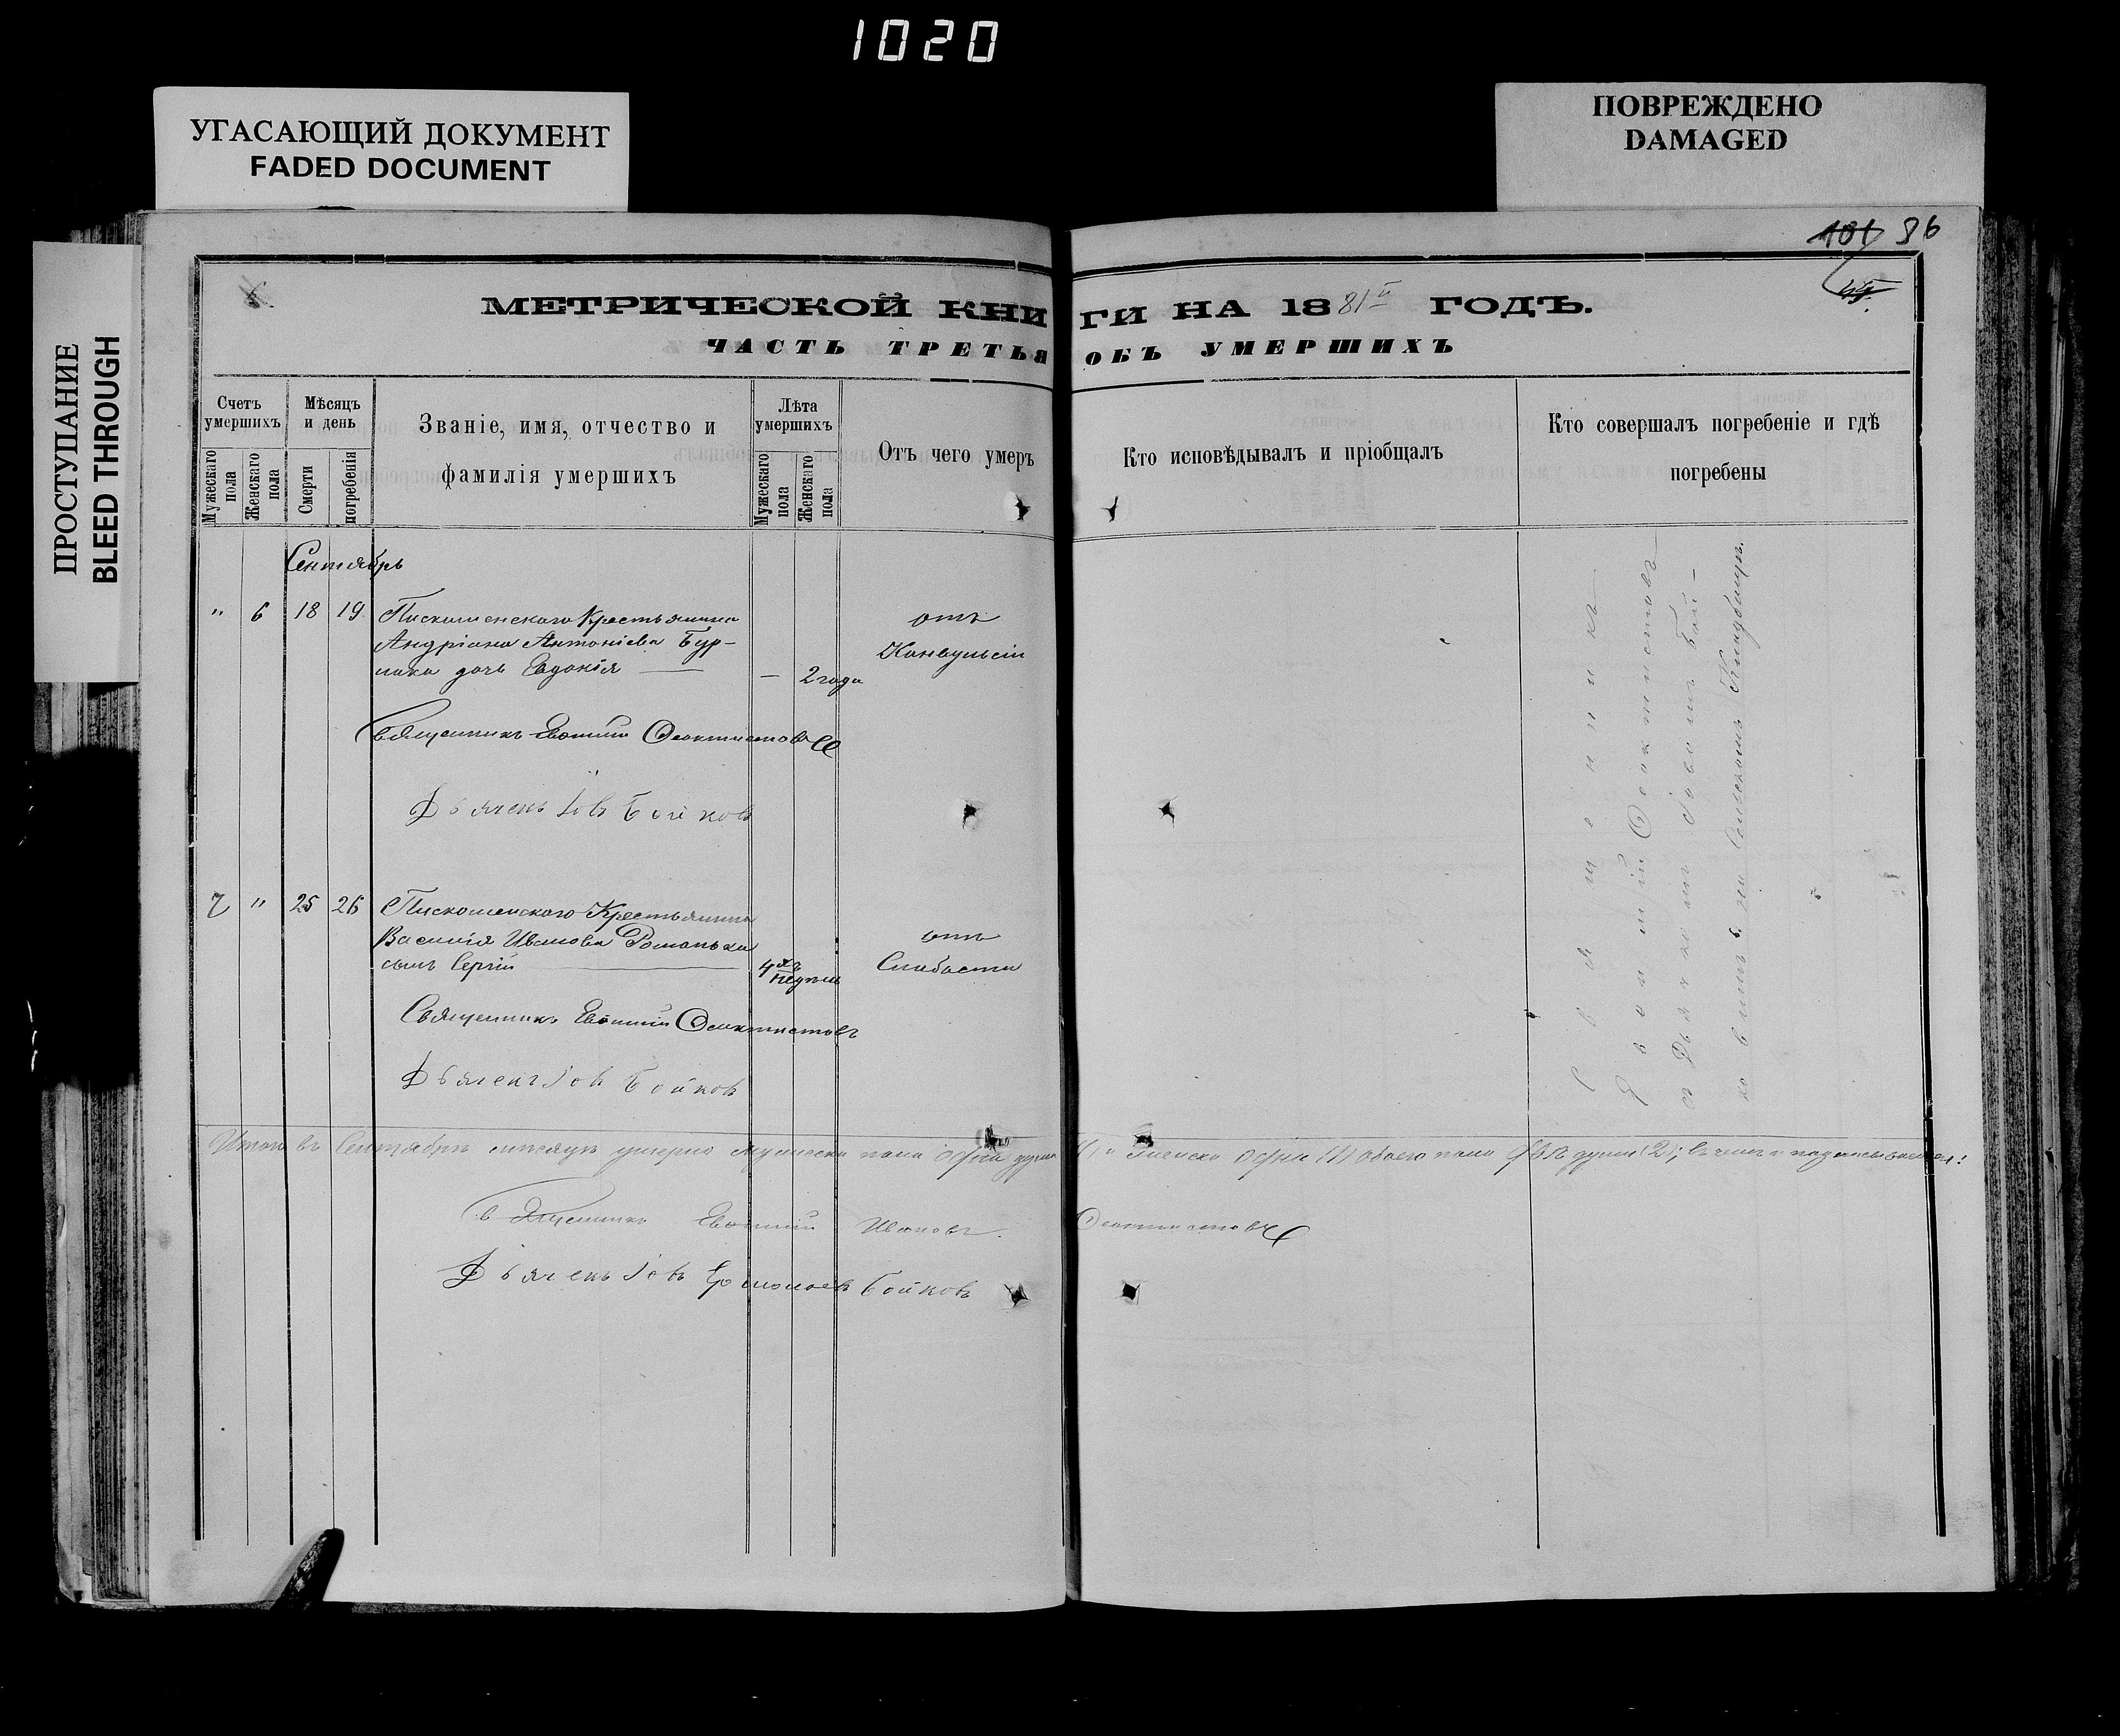 1020
УГАСАЮЩИЙ ДОКУМЕНТ
FADED DOCUMENT
ПОВРЕЖДЕНО
DAMAGED
ПРОСТУПАНИЕ
BLEED THROUGH
101 96
МЕТРИЧЕСКОЙ КНИГИ НА 1881й ГОДЪ.
ЧАСТЬ ТРЕТЬЯ ОБЪ УМЕРШИХЪ
Счетъ умершихъ
Мужескаго пола
Женскаго пола
Мѣсяцъ и день
Смерти
погребенія
Званіе, имя, отчество и
фамилія умершихъ
Лѣта умершихъ
Мужескаго пола
Женскаго пола
Отъ чего умеръ
Кто исповѣдывалъ и пріобщалъ
Кто совершалъ погребеніе и гдѣ
погребены
Сентябрь
" 6 18 19 Пискошенскаго Крестьянина
Андріана Антоніева Бур-
лака дочь Евдокія — — 2 года
отъ
Конвульсіи
Священникъ Евѳимій Ѳеоктистовъ
Дьячекъ Іовъ Бойковъ
7 " 25 26 Пискошенскаго Крестьянина
Василія Иванова Романька
сынъ Сергій — 4хъ недѣль
отъ
Слабости
Священникъ Евѳимій Ѳеоктистовъ
Дьячекъ Іовъ Бойковъ
Священникъ
Евѳимій Ѳеоктистовъ
съ Дьячкомъ Іовомъ Бой-
ковымъ на Сельскомъ Кладбищѣ.
Итого въ Сентябрѣ мѣсяцѣ умерло мужеска пола одна душа (1) и женска одна (1) обоего пола двѣ души (2); въ чемъ и подписываемся:
Священникъ Евѳимій Ивановъ Ѳеоктистовъ
Дьячекъ Іовъ Бойковъ